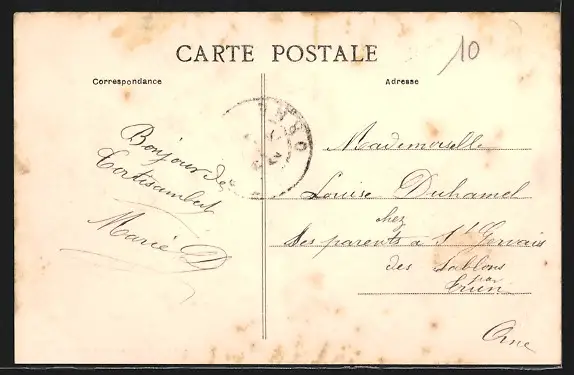 CARTE POSTALE
10
Correspondance
Adresse
Bonjour de
Cortisambert
Marie D
Mademoiselle
Louise Duhamel
chez
Ses parents à St Gervais
des Sablons
par
Trun
Orne